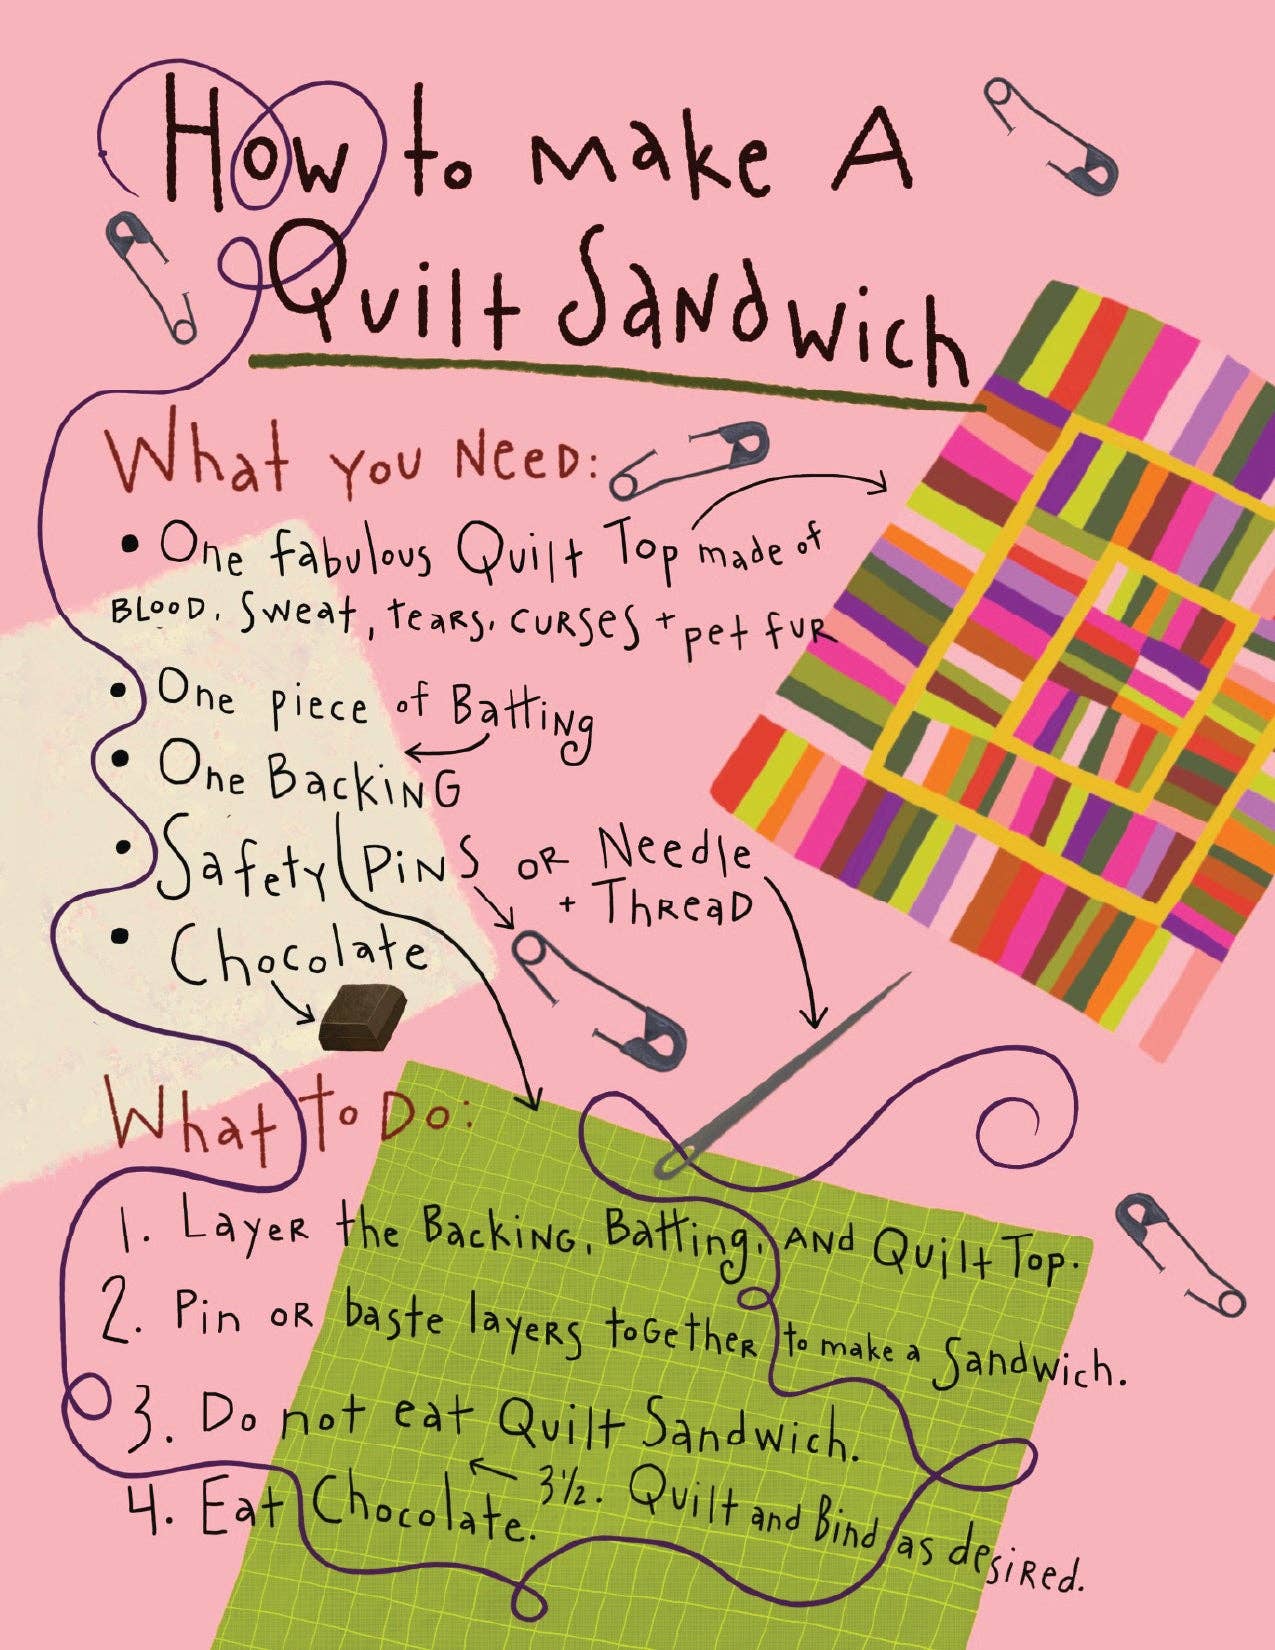 How to make A
Quilt Sandwich
What you Need:
• One fabulous Quilt Top made of
BLOOD, Sweat, tears, curses + pet fur
• One piece of Batting
• One Backing
• Safety Pins or Needle
+ Thread
• Chocolate
What to Do:
1. Layer the Backing, Batting, and Quilt Top.
2. Pin or baste layers together to make a Sandwich.
3. Do not eat Quilt Sandwich.
3½. Quilt and Bind as desired.
4. Eat Chocolate.